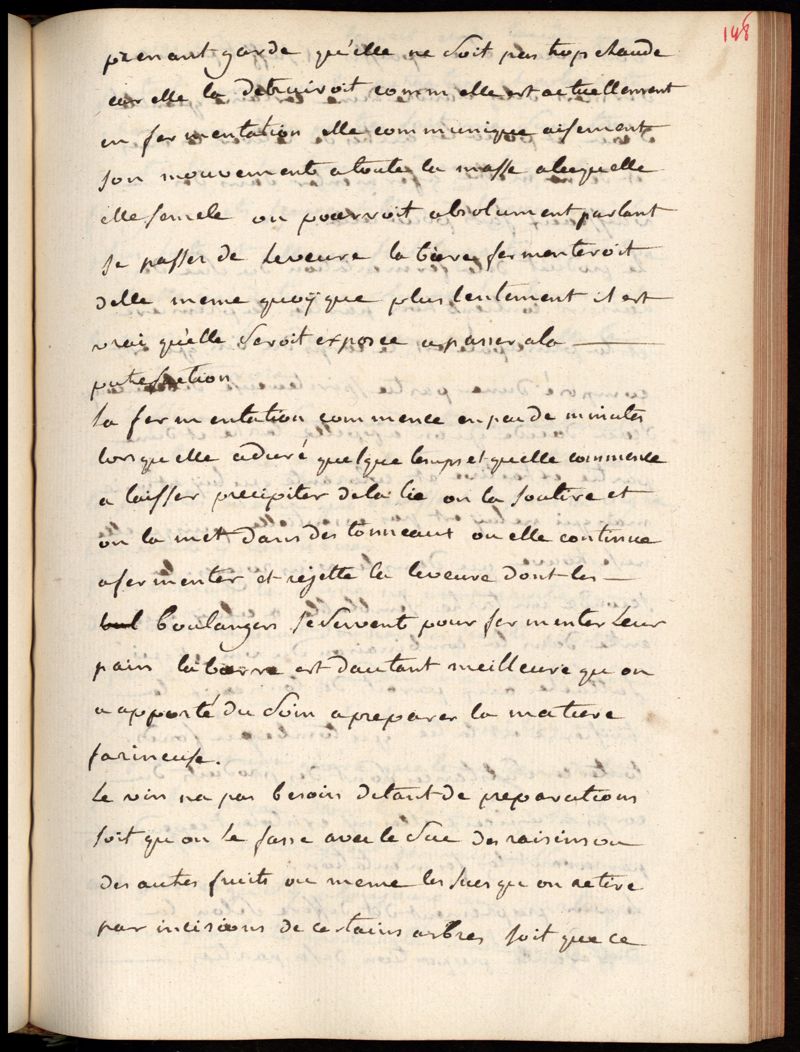 148
prenant garde qu'elle ne soit pas trop chaude
car elle la detruiroit comm elle est actuellement
en fermentation elle communique aisement
son mouvement a toute la masse alaquelle
elle semele on pourroit absolument parlant
se passer de leveure la biere fermenteroit
delle meme quoÿque plus lentement il est
vrai qu'elle seroit exposée apasser ala
putrefaction
la fermentation commence en peu de minutes
lorsquelle aduré quelque temps et quelle commence
a laisser precipiter dela lie on la soutire et
on la met dans des tonneaux ou elle continue
afermenter et rejette la leveure dont les
boulangers se servent pour fermenter leur
pain la bierre est dautant meilleure qu on
a apporté du soin apreparer la matiere
farineuse.
le vin na pas besoin detant de preparations
soit qu on le fasse avec le suc des raisins ou
des autres fruits ou meme les sucs qu on retire
par incisions de certains arbres soit que ce